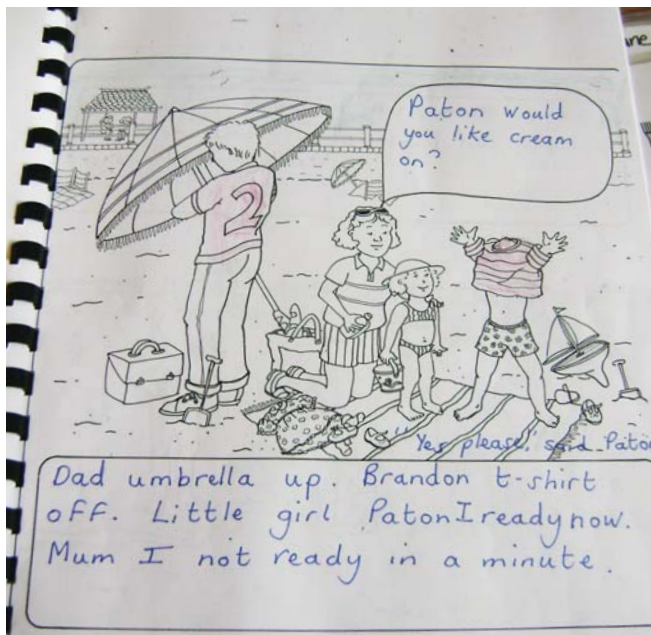 Paton would
you like cream
on?
2
"Yes please," said Paton
Dad umbrella up. Brandon t-shirt
off. Little girl Paton I ready now.
Mum I not ready in a minute.